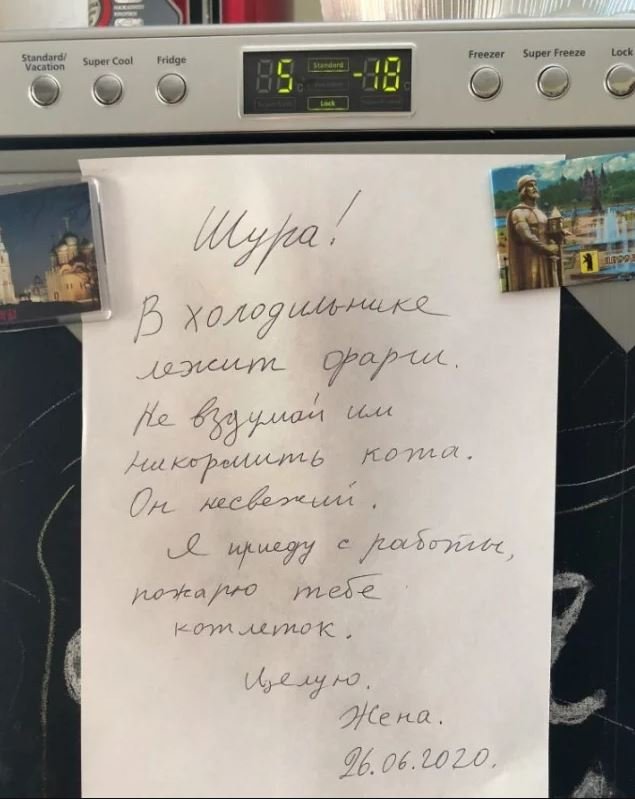 Standard/
Vacation
Super Cool
Fridge
5 °C
Standard
Lock
-18 °C
Freezer
Super Freeze
Lock
Шура!
В холодильнике
лежит фарш.
Не вздумай им
накормить кота.
Он несвежий.
Я приеду с работы,
пожарю тебе
котлеток.
Целую.
Жена.
26.06.2020.